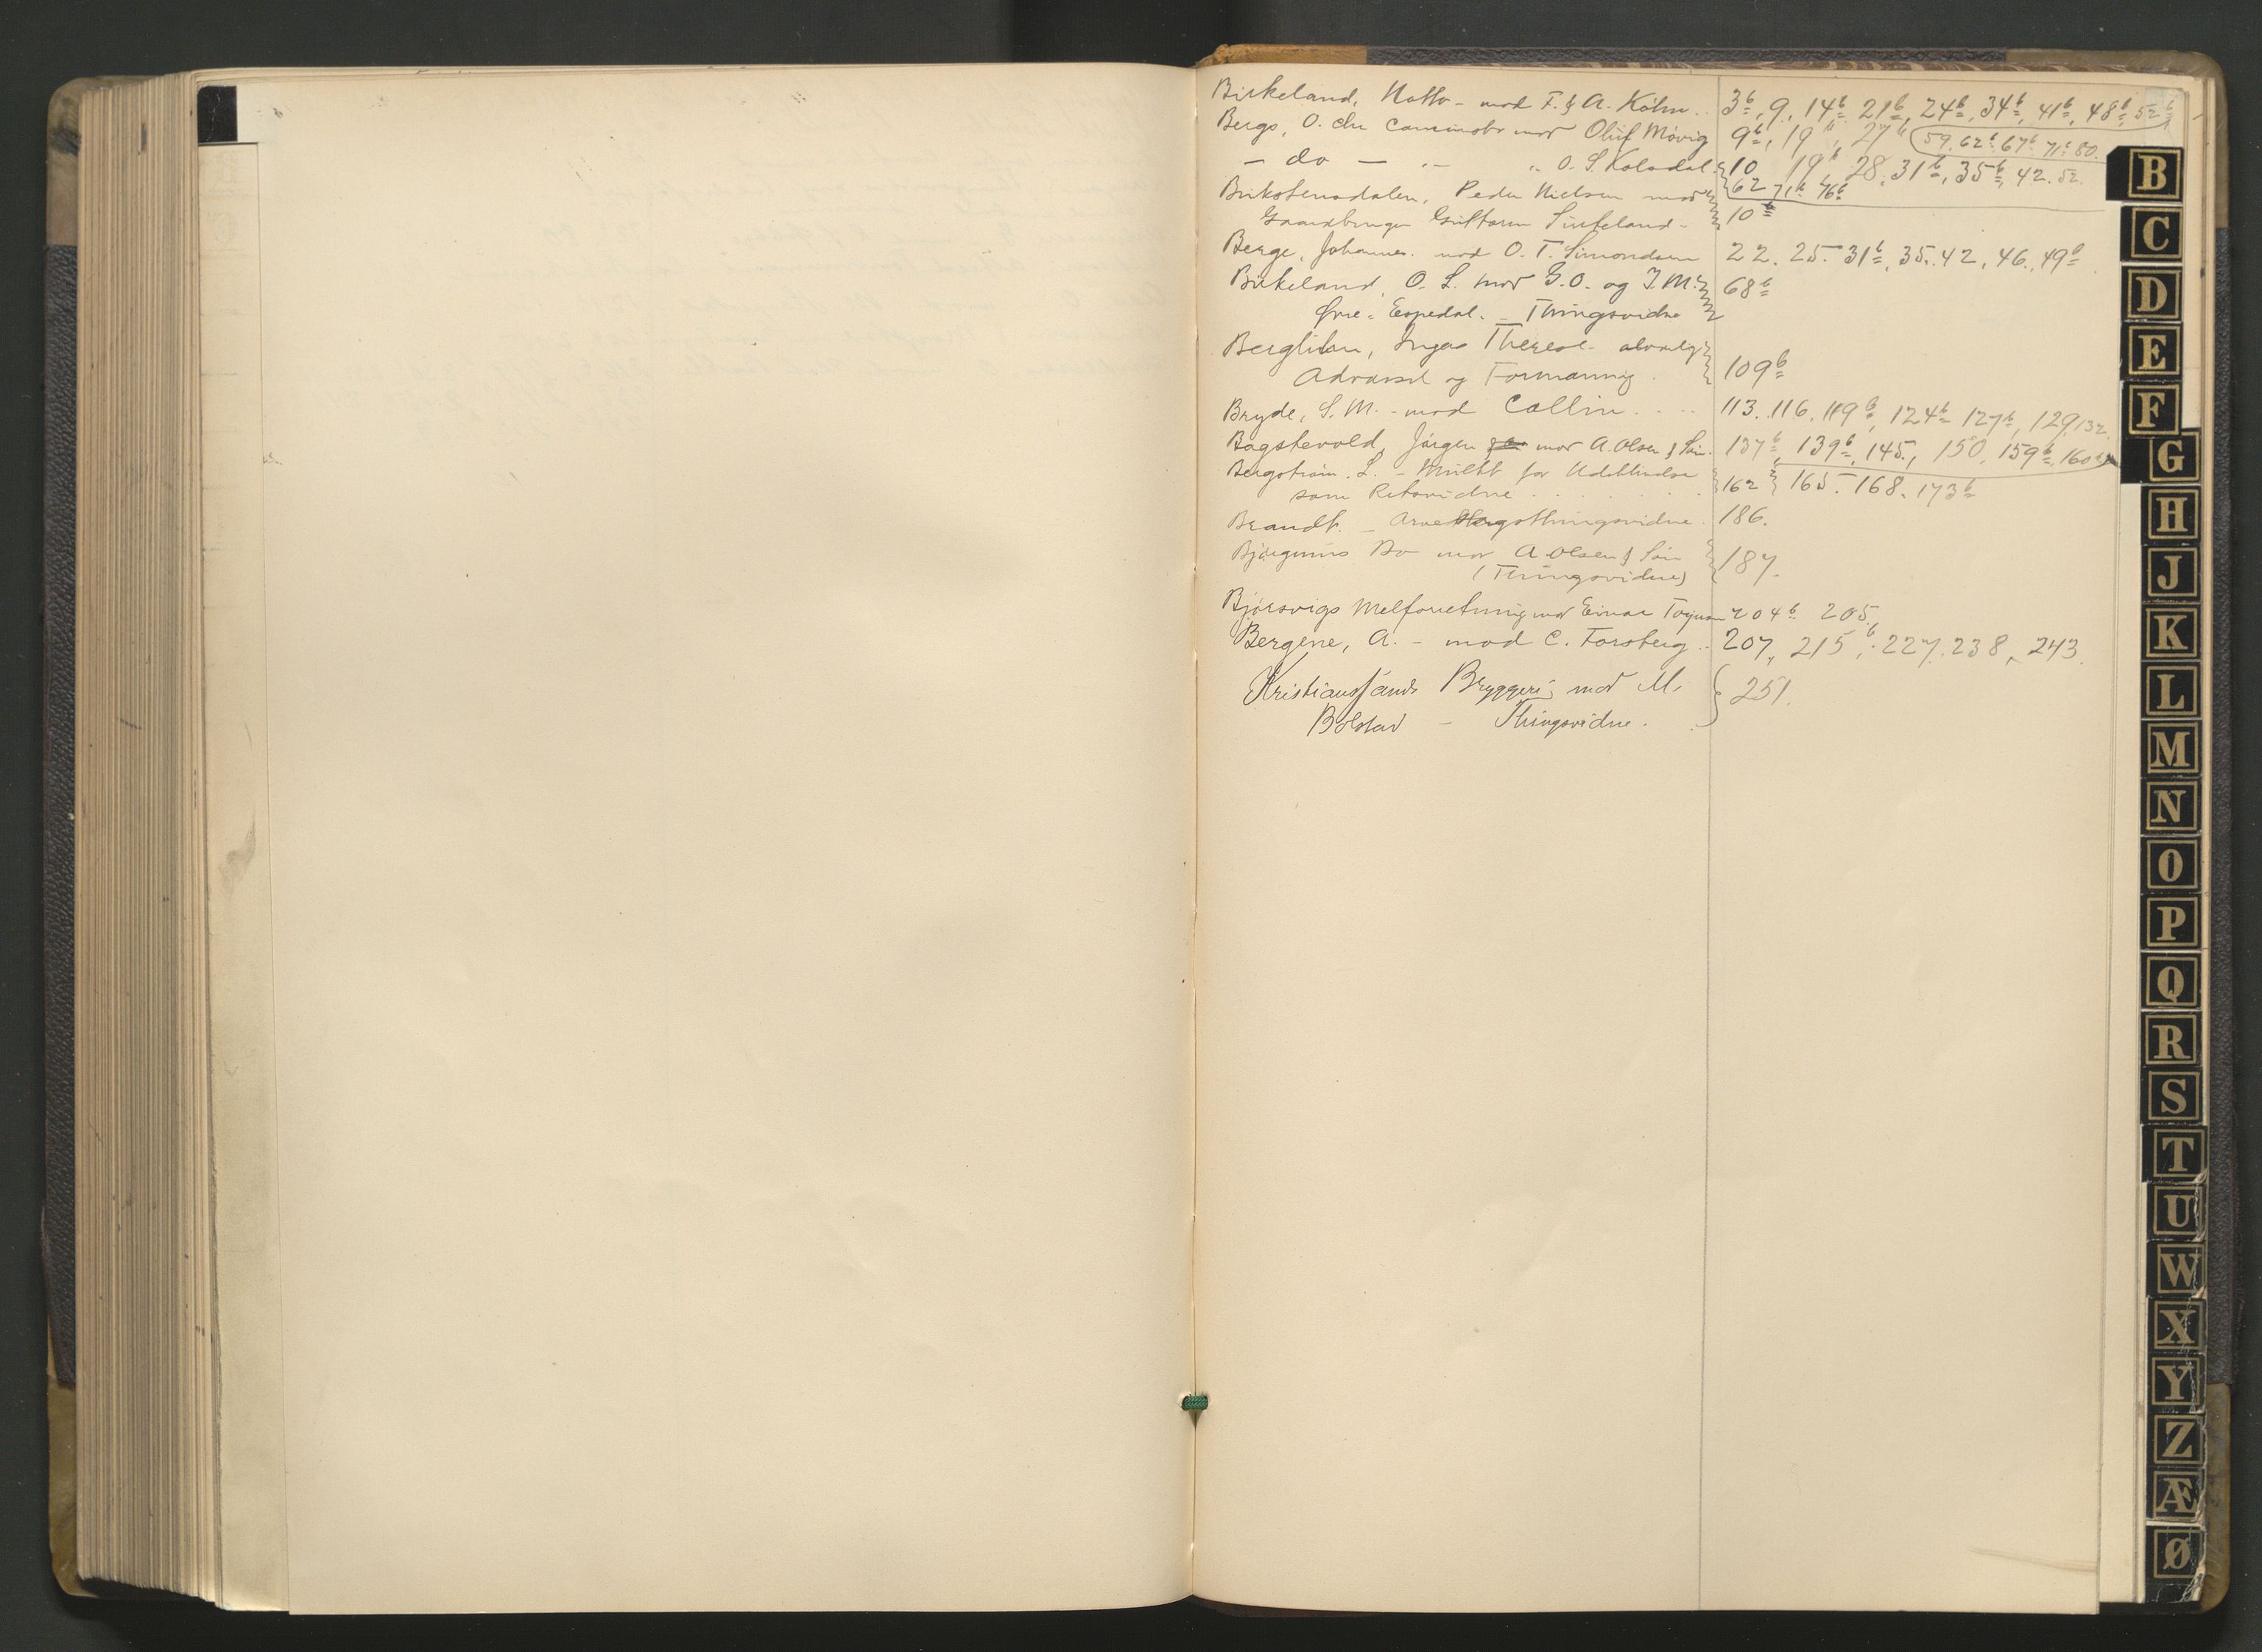 Birkeland, Notto - mod F. & A. Kölm .. 3b, 9, 14b, 21b, 24b, 34b, 41b, 48b, 52b
Bergs, O. Chr mod Oluf Mövig 9b, 19b, 27b 59. 62b. 67b 71b 80.
- do - .. .. O. S. Kolsdal. 10 19b 28, 31b, 35b, 42. 52.
62 71b 76b
Birkstensdalen, Peder Nielsen mod
Gaardbruger Guttorm 10b
Berge, Johannes. mod O. T. Simondsen 22. 25. 31b, 35. 42, 46., 49b
Birkeland, O. L. mod G. O. og T. M. 68b
Øvre Espedal. - Thingsvidne
Berglihn, Inga Therese - alvorlig
Advarsel og Formaning. 109b
Bryde, S. M. - mod Collin . . . . 113. 116. 119b, 124b 127b, 129, 132.
Bagstevold, Jörgen mod A. Olsen & Sön. 137b, 139b, 145., 150, 159b, 160
Bergström. L. - Mulkt for Udeblivelse
som Retsvidne . . . . . . 162 165. 168. 173b
Brandt. - Arve thingsvidne. 186.
Bjørgums Bo mod A Olsen & Sön
(Thingsvidne) 187.
Bjørsvigs Melforretning mod Einar 204b 205.
Bergene, A. - mod C. Forsberg .. 207, 215b, 227. 238, 243.
Kristianssands Bryggeri mod M. 251.
Bolstad - Thingsvidne.
B
C
D
E
F
G
H
J
K
L
M
N
O
P
Q
R
S
T
U
W
X
Y
Z
Æ
Ø